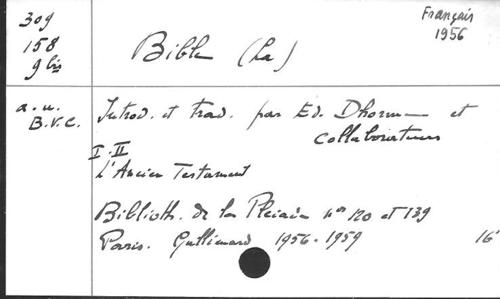 309
158
9 bis
Français
1956
Bible (La)
a. u.
B.V.C.
Introd. et trad. par Ed. Dhorme et
collaborateurs
I-II
L'Ancien Testament
Biblioth. de la Pleiade nos 120 et 139
Paris. Gallimard 1956-1959 16°